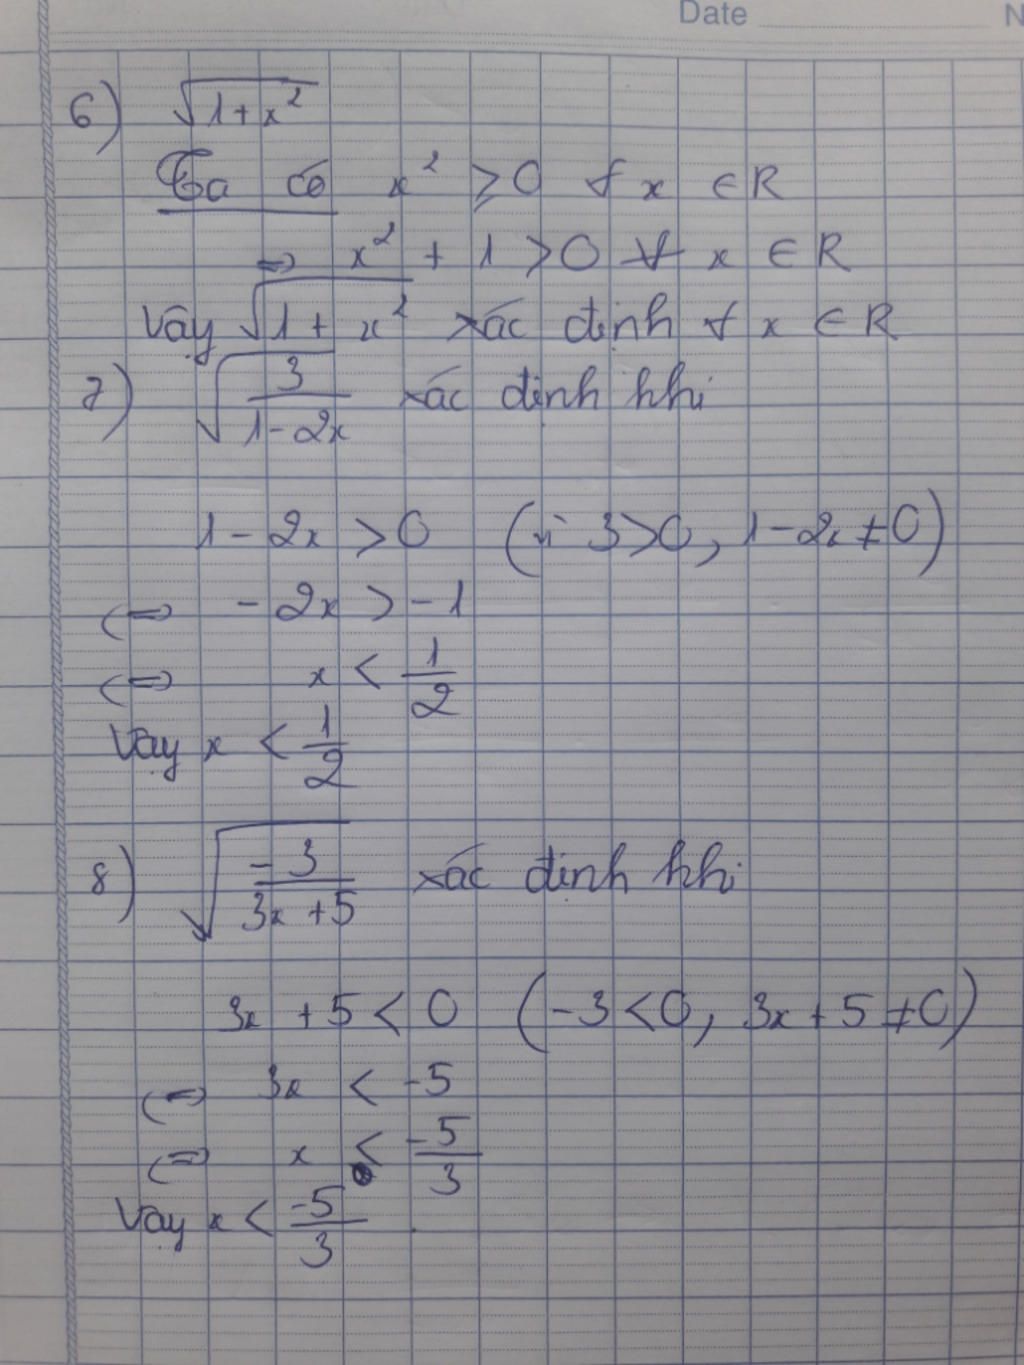 Date N
6) √(1 + x²)
Ta có x² ⩾ 0 ∀ x ∈ R
⇒ x² + 1 > 0 ∀ x ∈ R
Vậy √(1 + x²) xác định ∀ x ∈ R
7) √(3/(1 - 2x)) xác định khi
1 - 2x > 0 (vì 3 > 0, 1 - 2x ≠ 0)
⇔ - 2x > - 1
⇔ x < 1/2
Vậy x < 1/2
8) √(-3/(3x + 5)) xác định khi
3x + 5 < 0 (-3 < 0, 3x + 5 ≠ 0)
⇔ 3x < -5
⇔ x < -5/3
Vậy x < -5/3.